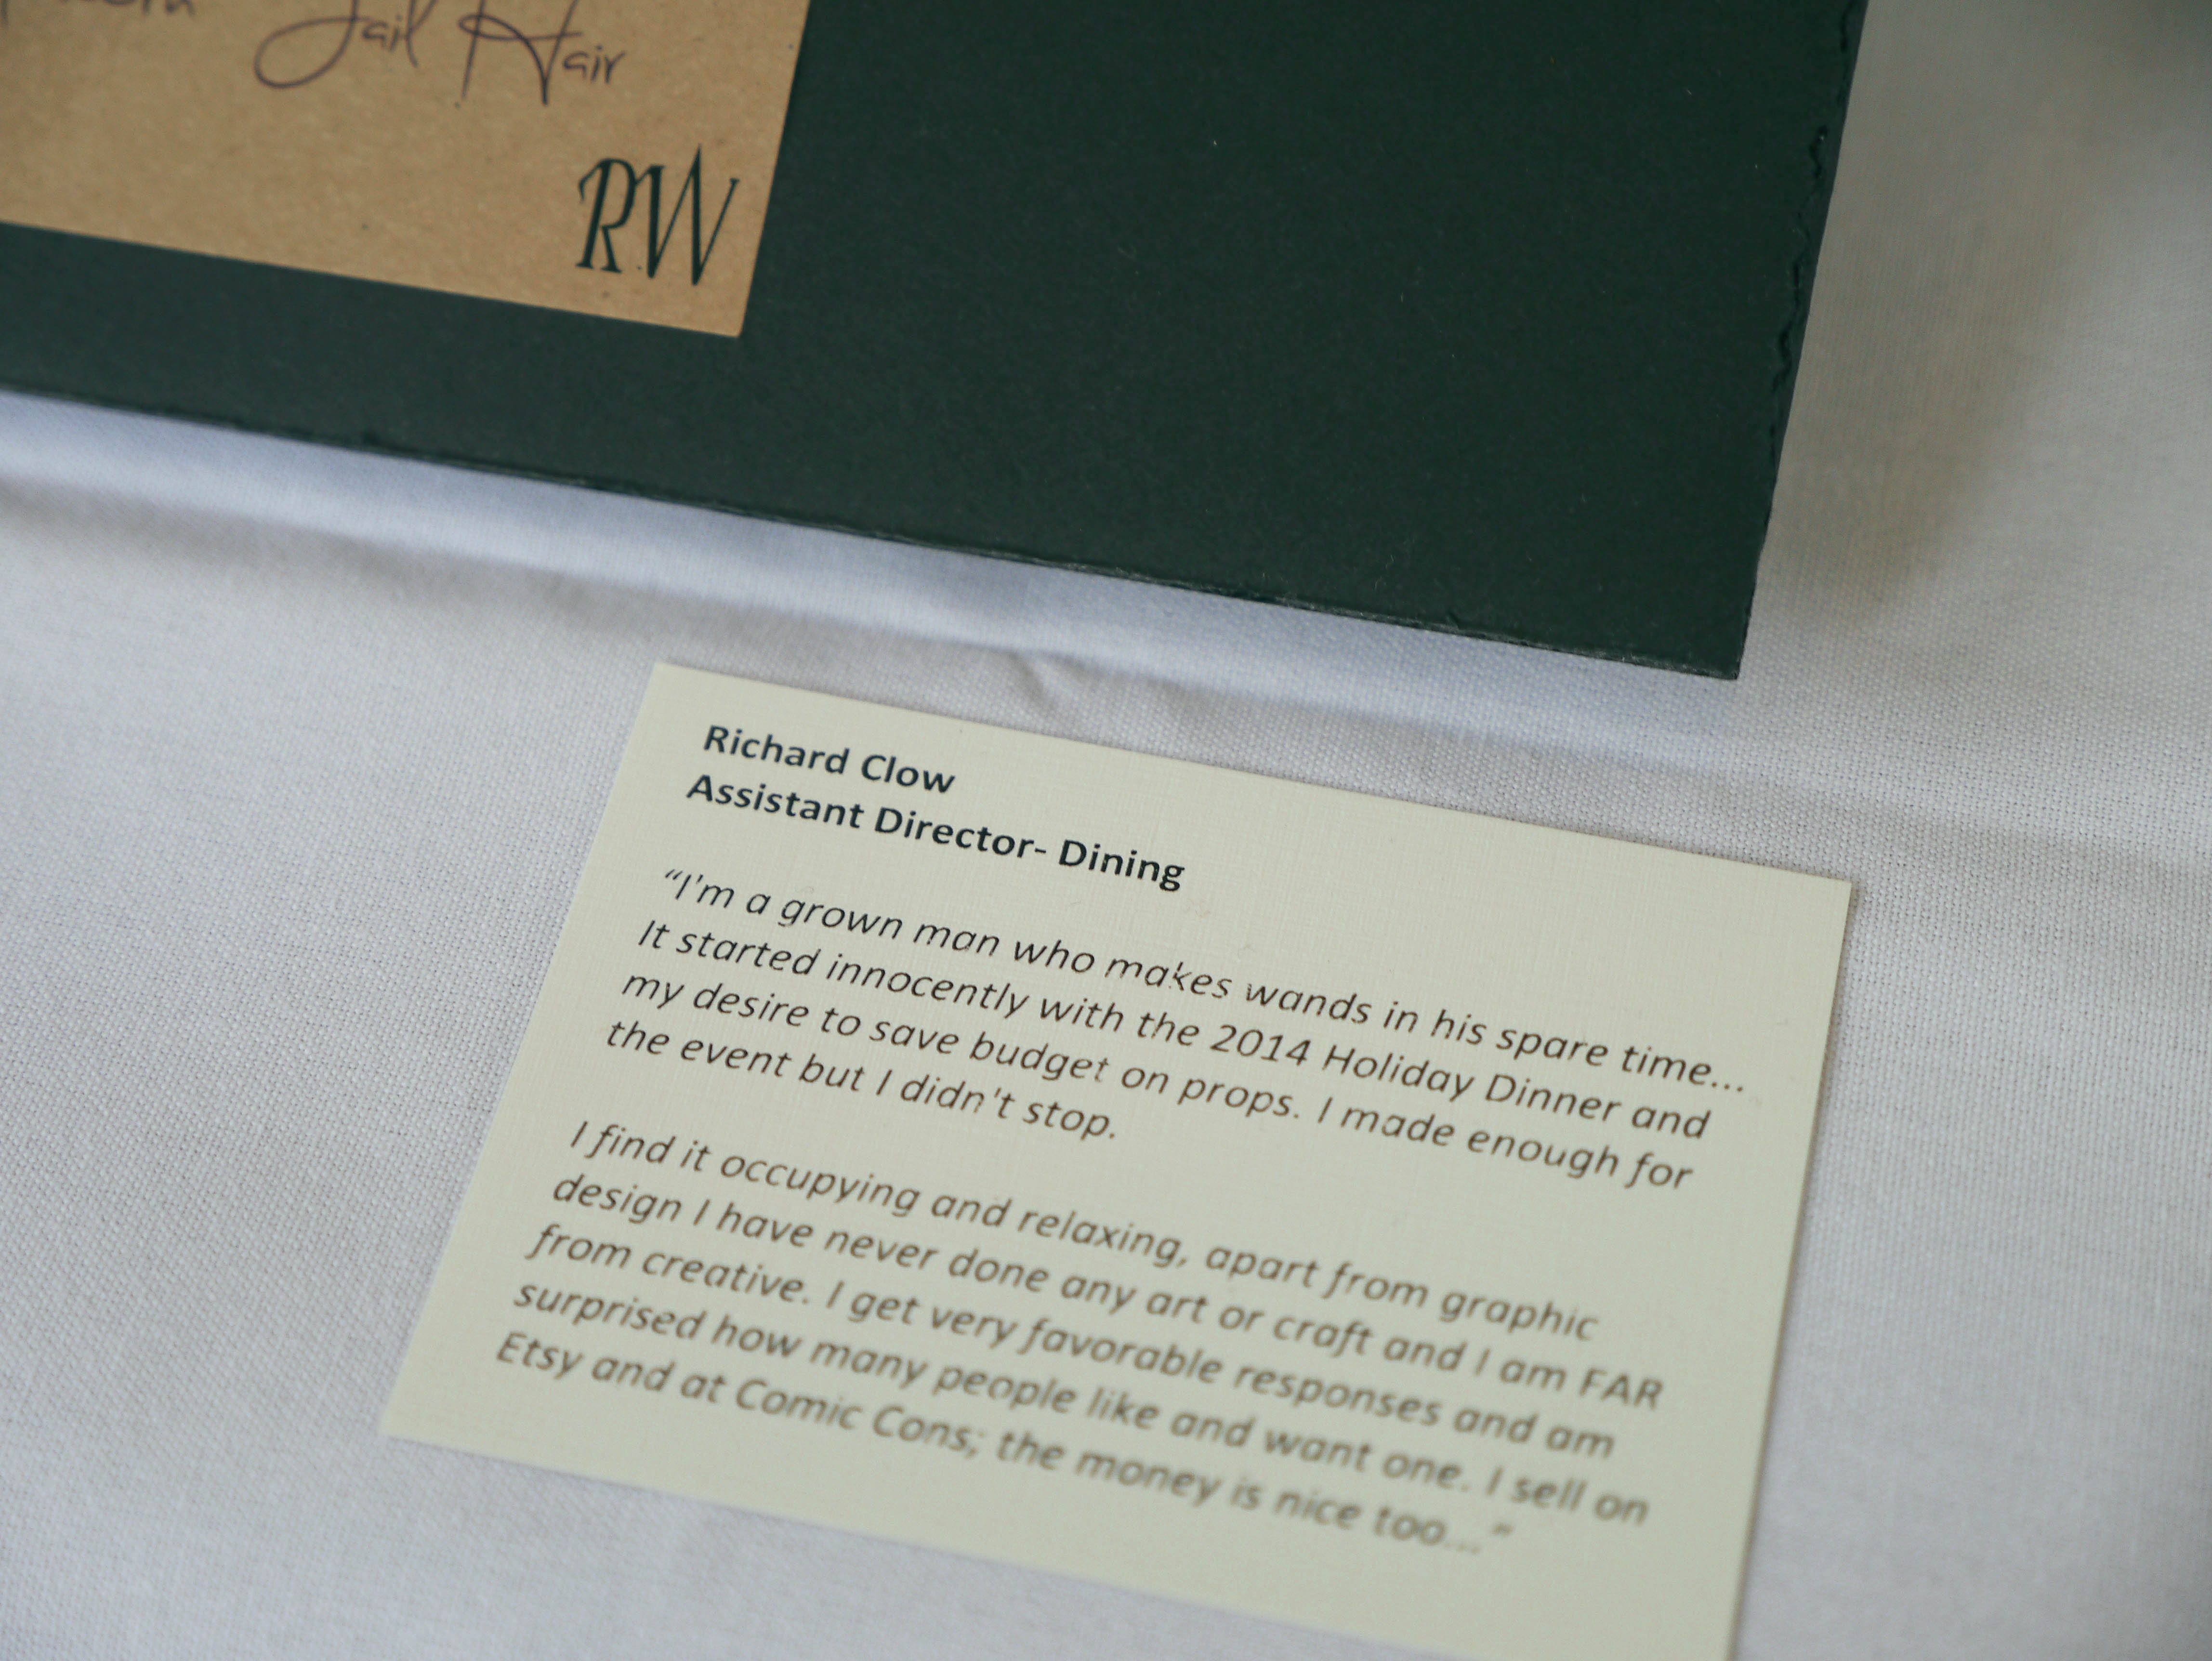 Jail Hair
RW
Richard Clow
Assistant Director- Dining
“I'm a grown man who makes wands in his spare time...
It started innocently with the 2014 Holiday Dinner and
my desire to save budget on props. I made enough for
the event but I didn't stop.
I find it occupying and relaxing, apart from graphic
design I have never done any art or craft and I am FAR
from creative. I get very favorable responses and am
surprised how many people like and want one. I sell on
Etsy and at Comic Cons; the money is nice too...”